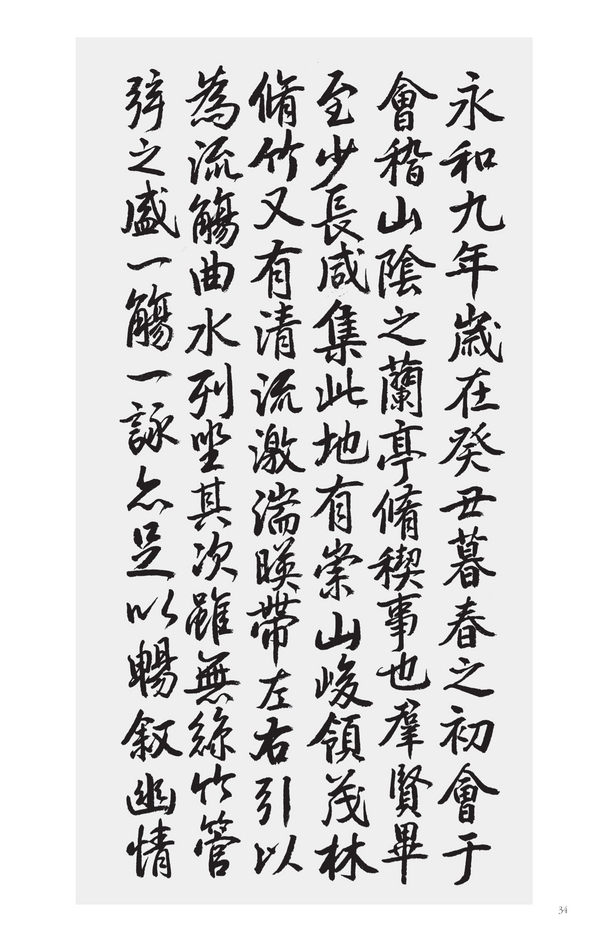 永和九年歲在癸丑暮春之初會于
會稽山陰之蘭亭脩稧事也羣賢畢
至少長咸集此地有崇山峻領茂林
脩竹又有清流激湍暎帶左右引以
為流觴曲水列坐其次雖無絲竹管
弦之盛一觴一詠亦足以暢叙幽情
34